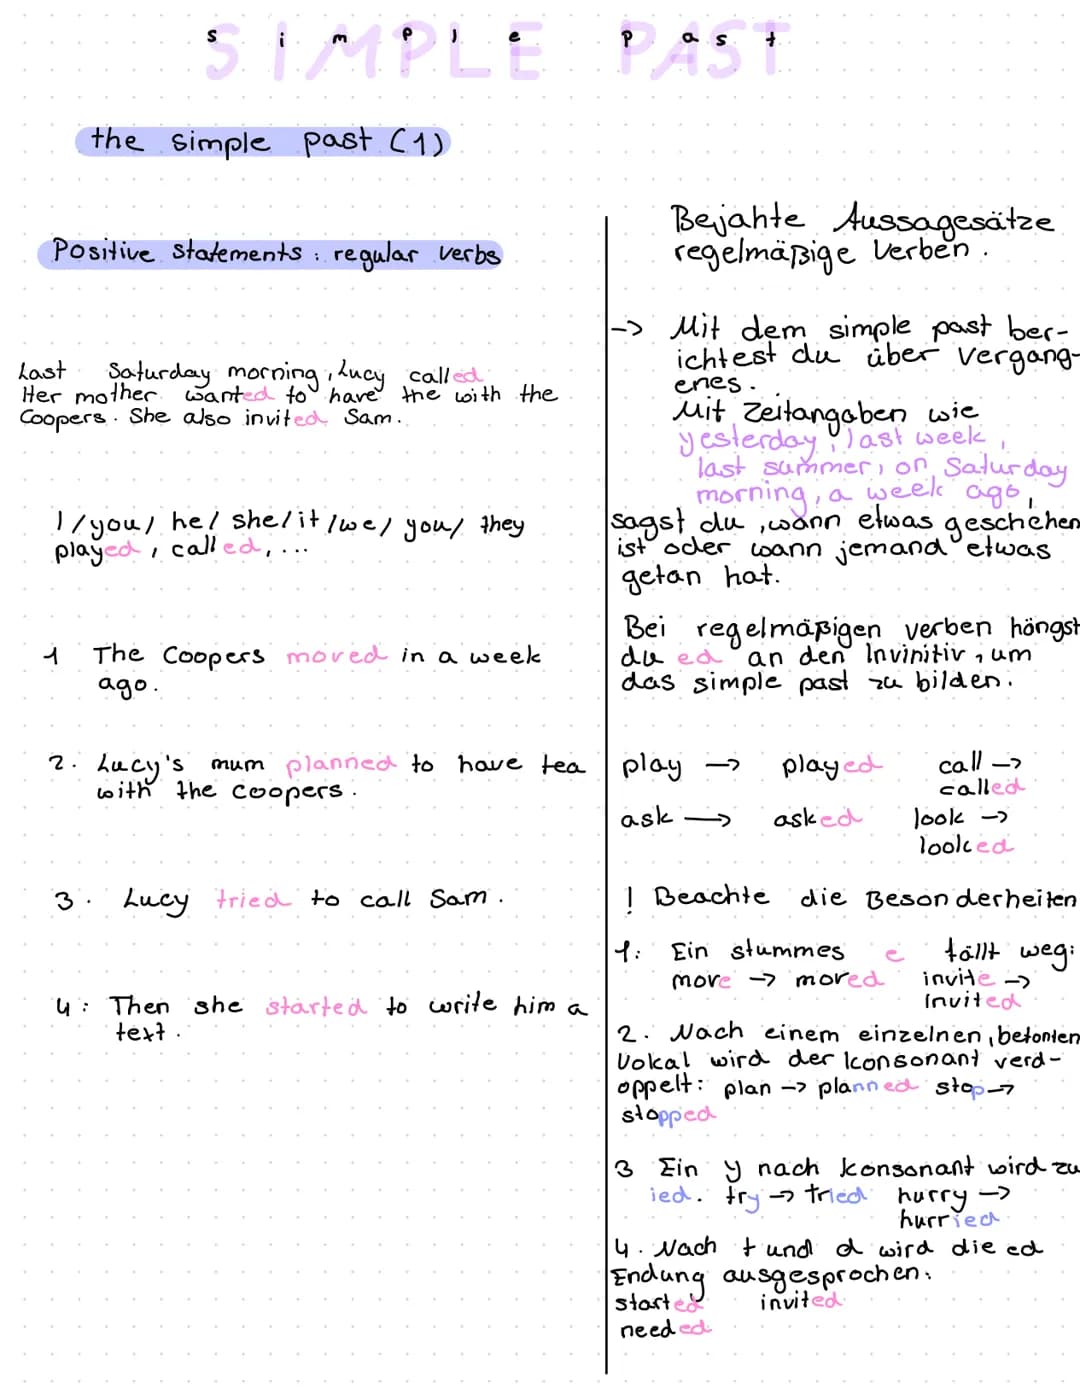 SIMPLE PAST
simple past
the simple past (1)
Positive statements : regular verbs
Last Saturday morning, Lucy called
Her mother wanted to have the with the
Coopers. She also invited Sam.
I/you/ he/ she/it/we/ you/ they
played, called, ...
1 The Coopers moved in a week
ago.
2. Lucy's mum planned to have tea
with the coopers.
3. Lucy tried to call Sam.
4: Then she started to write him a
text.
Bejahte Aussagesätze
regelmäßige Verben.
-> Mit dem simple past ber-
ichtest du über vergang-
enes.
Mit Zeitangaben wie
yesterday, last week,
last summer, on Saturday
morning, a week ago,
sagst du, wann etwas geschehen
ist oder wann jemand etwas
getan hat.
Bei regelmäßigen verben hängst
du ed an den Invinitiv, um
das simple past zu bilden.
play -> played call ->
called
ask -> asked look ->
looked
! Beachte die Besonderheiten
1: Ein stummes e fällt weg:
more -> mored invite ->
invited
2. Nach einem einzelnen, betonten
Vokal wird der Konsonant verd-
oppelt: plan -> planned stop ->
stopped
3 Ein y nach Konsonant wird zu
ied. try -> tried hurry ->
hurried
4. Nach t und d wird die ed
Endung ausgesprochen:
started invited
needed